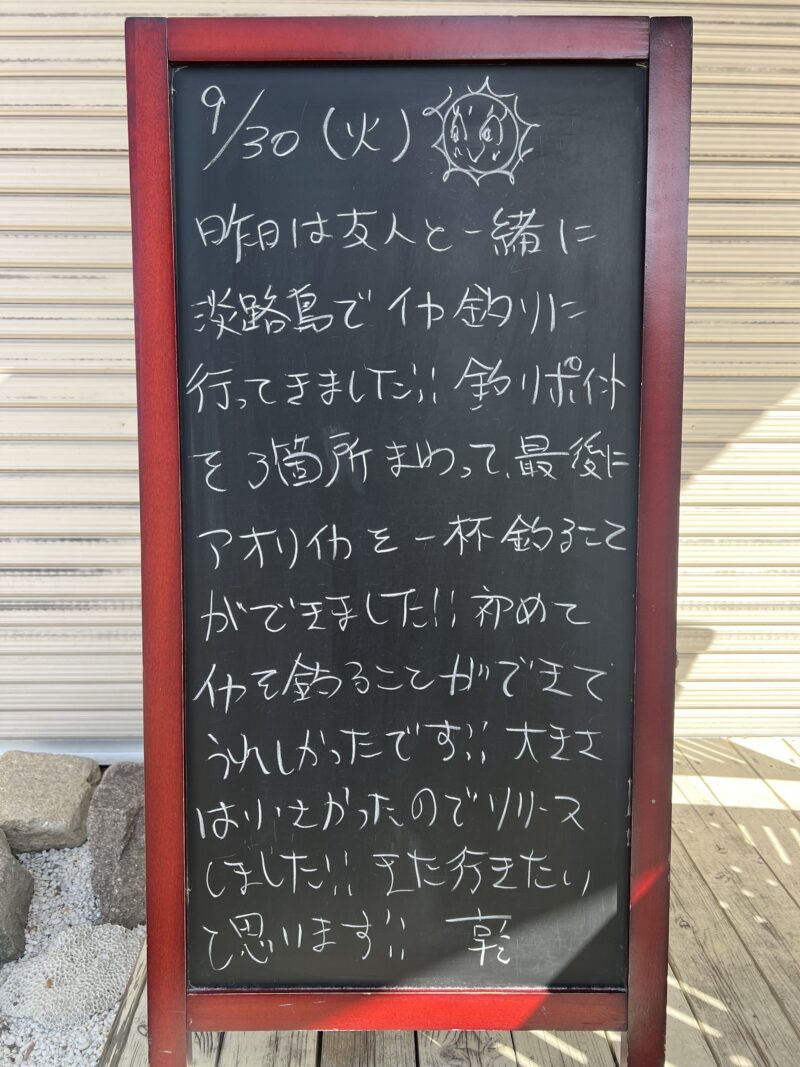 9/30(火)
昨日は友人と一緒に
淡路島でイカ釣りに
行ってきました!! 釣りポイント
を3箇所まわって、最後に
アオリイカを一杯釣ること
ができました!! 初めて
イカを釣ることができて
うれしかったです!! 大きさ
は小さかったのでリリース
しました!! また行きたい
と思います!! 乾